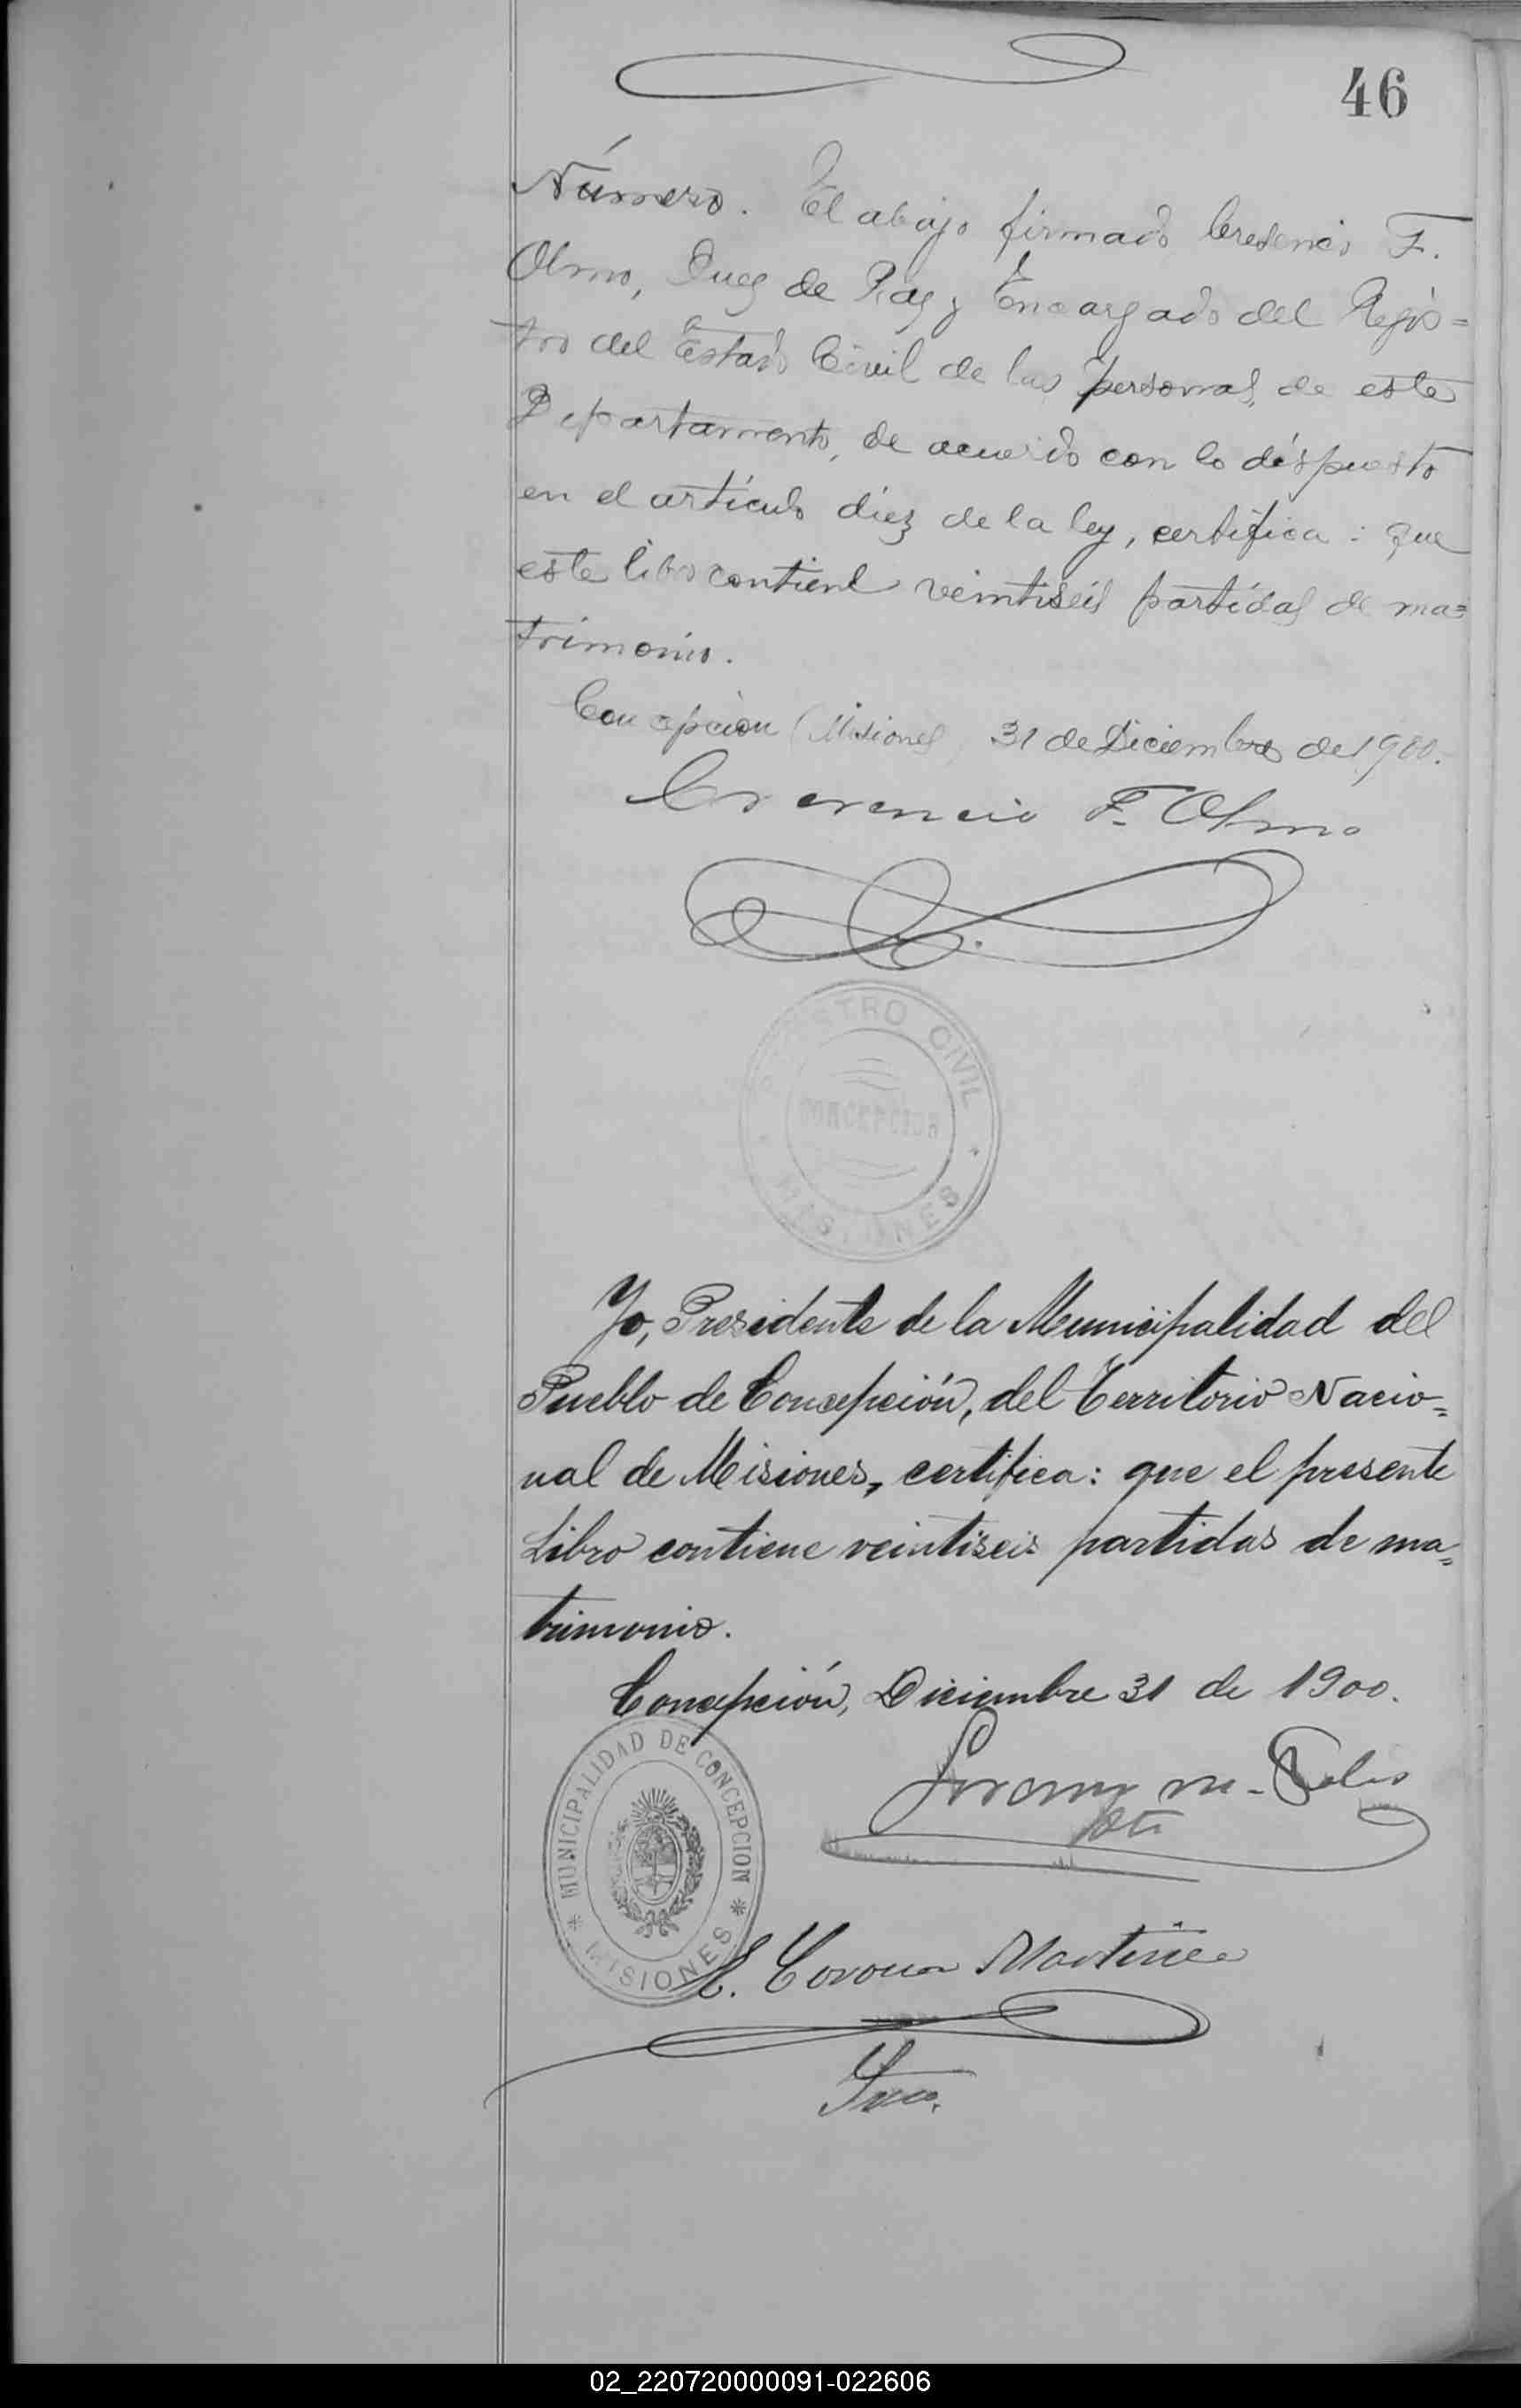 46
Número. El abajo firmado Cresencio F.
Olmo, Juez de Paz y Encargado del Regis=
tro del Estado Civil de las personas, de este
Departamento, de acuerdo con lo dispuesto
en el artículo diez de la ley, certifica: que
este libro contiene veintiseis partidas de ma=
trimonio.
Concepcion (Misiones) 31 de Diciembre de 1900.
F. Olmo
REGISTRO CIVIL
CONCEPCION
MISIONES
Yo, Presidente de la Municipalidad del
Pueblo de Concepción, del Territorio Nacio=
nal de Misiones, certifica: que el presente
Libro contiene veintiseis partidas de ma=
trimonio.
Concepción, Diciembre 31 de 1900.
MUNICIPALIDAD DE CONCEPCION
MISIONES
Pte
E. Corona Martinez
Srio.
02_220720000091-022606